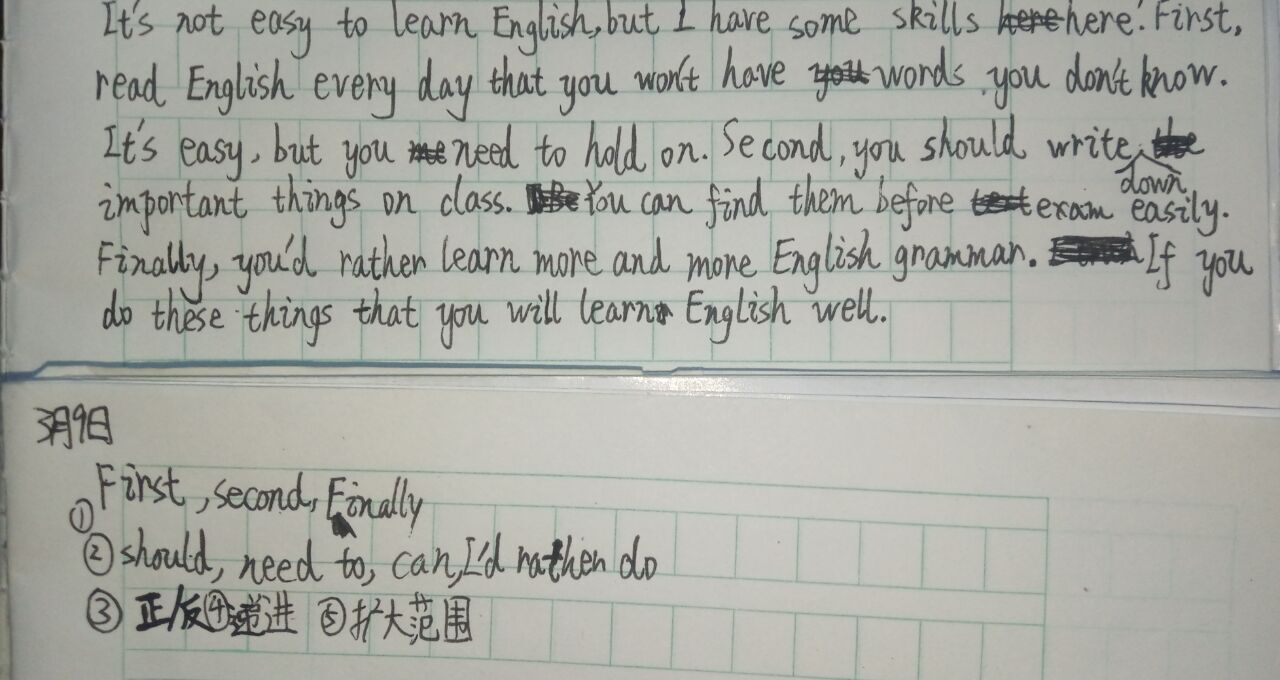 It's not easy to learn English, but I have some skills here. First,
read English every day that you won't have words you don't know.
It's easy, but you need to hold on. Second, you should write down
important things on class. You can find them before exam easily.
Finally, you'd rather learn more and more English grammar. If you
do these things that you will learn English well.
3月9日
① First, second, Finally
② should, need to, can, I'd rather do
③ 正/反 ④ 递进 ⑤ 扩大范围